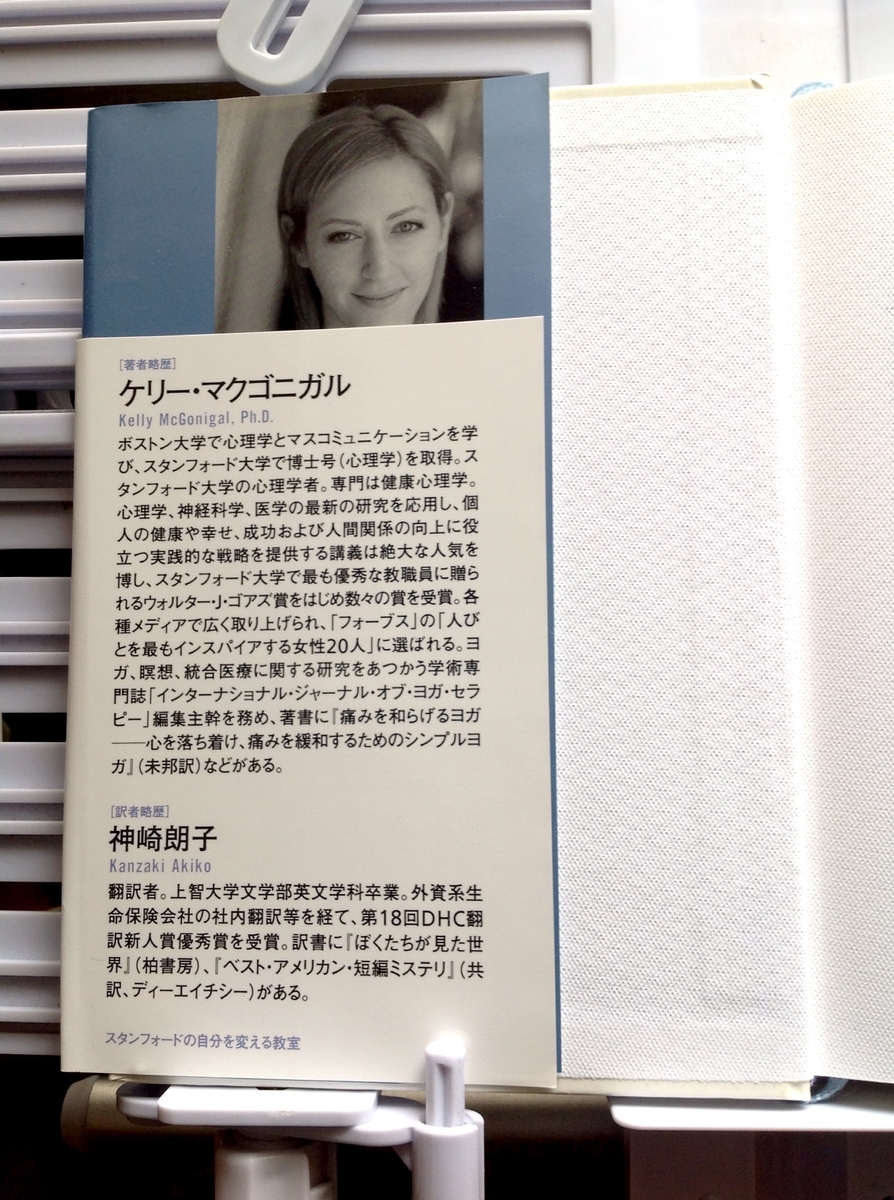 [著者略歴]
ケリー・マクゴニガル
Kelly McGonigal, Ph.D.
ボストン大学で心理学とマスコミュニケーションを学
び、スタンフォード大学で博士号(心理学)を取得。ス
タンフォード大学の心理学者。専門は健康心理学。
心理学、神経科学、医学の最新の研究を応用し、個
人の健康や幸せ、成功および人間関係の向上に役
立つ実践的な戦略を提供する講義は絶大な人気を
博し、スタンフォード大学で最も優秀な教職員に贈ら
れるウォルター・J・ゴアズ賞をはじめ数々の賞を受賞。各
種メディアで広く取り上げられ、「フォーブス」の「人び
とを最もインスパイアする女性20人」に選ばれる。ヨ
ガ、瞑想、統合医療に関する研究をあつかう学術専
門誌「インターナショナル・ジャーナル・オブ・ヨガ・セラ
ピー」編集主幹を務め、著書に『痛みを和らげるヨガ
――心を落ち着け、痛みを緩和するためのシンプルヨ
ガ』(未邦訳)などがある。
[訳者略歴]
神崎朗子
Kanzaki Akiko
翻訳者。上智大学文学部英文学科卒業。外資系生
命保険会社の社内翻訳等を経て、第18回DHC翻
訳新人賞優秀賞を受賞。訳書に『ぼくたちが見た世
界』(柏書房)、『ベスト・アメリカン・短編ミステリ』(共
訳、ディーエイチシー)がある。
スタンフォードの自分を変える教室